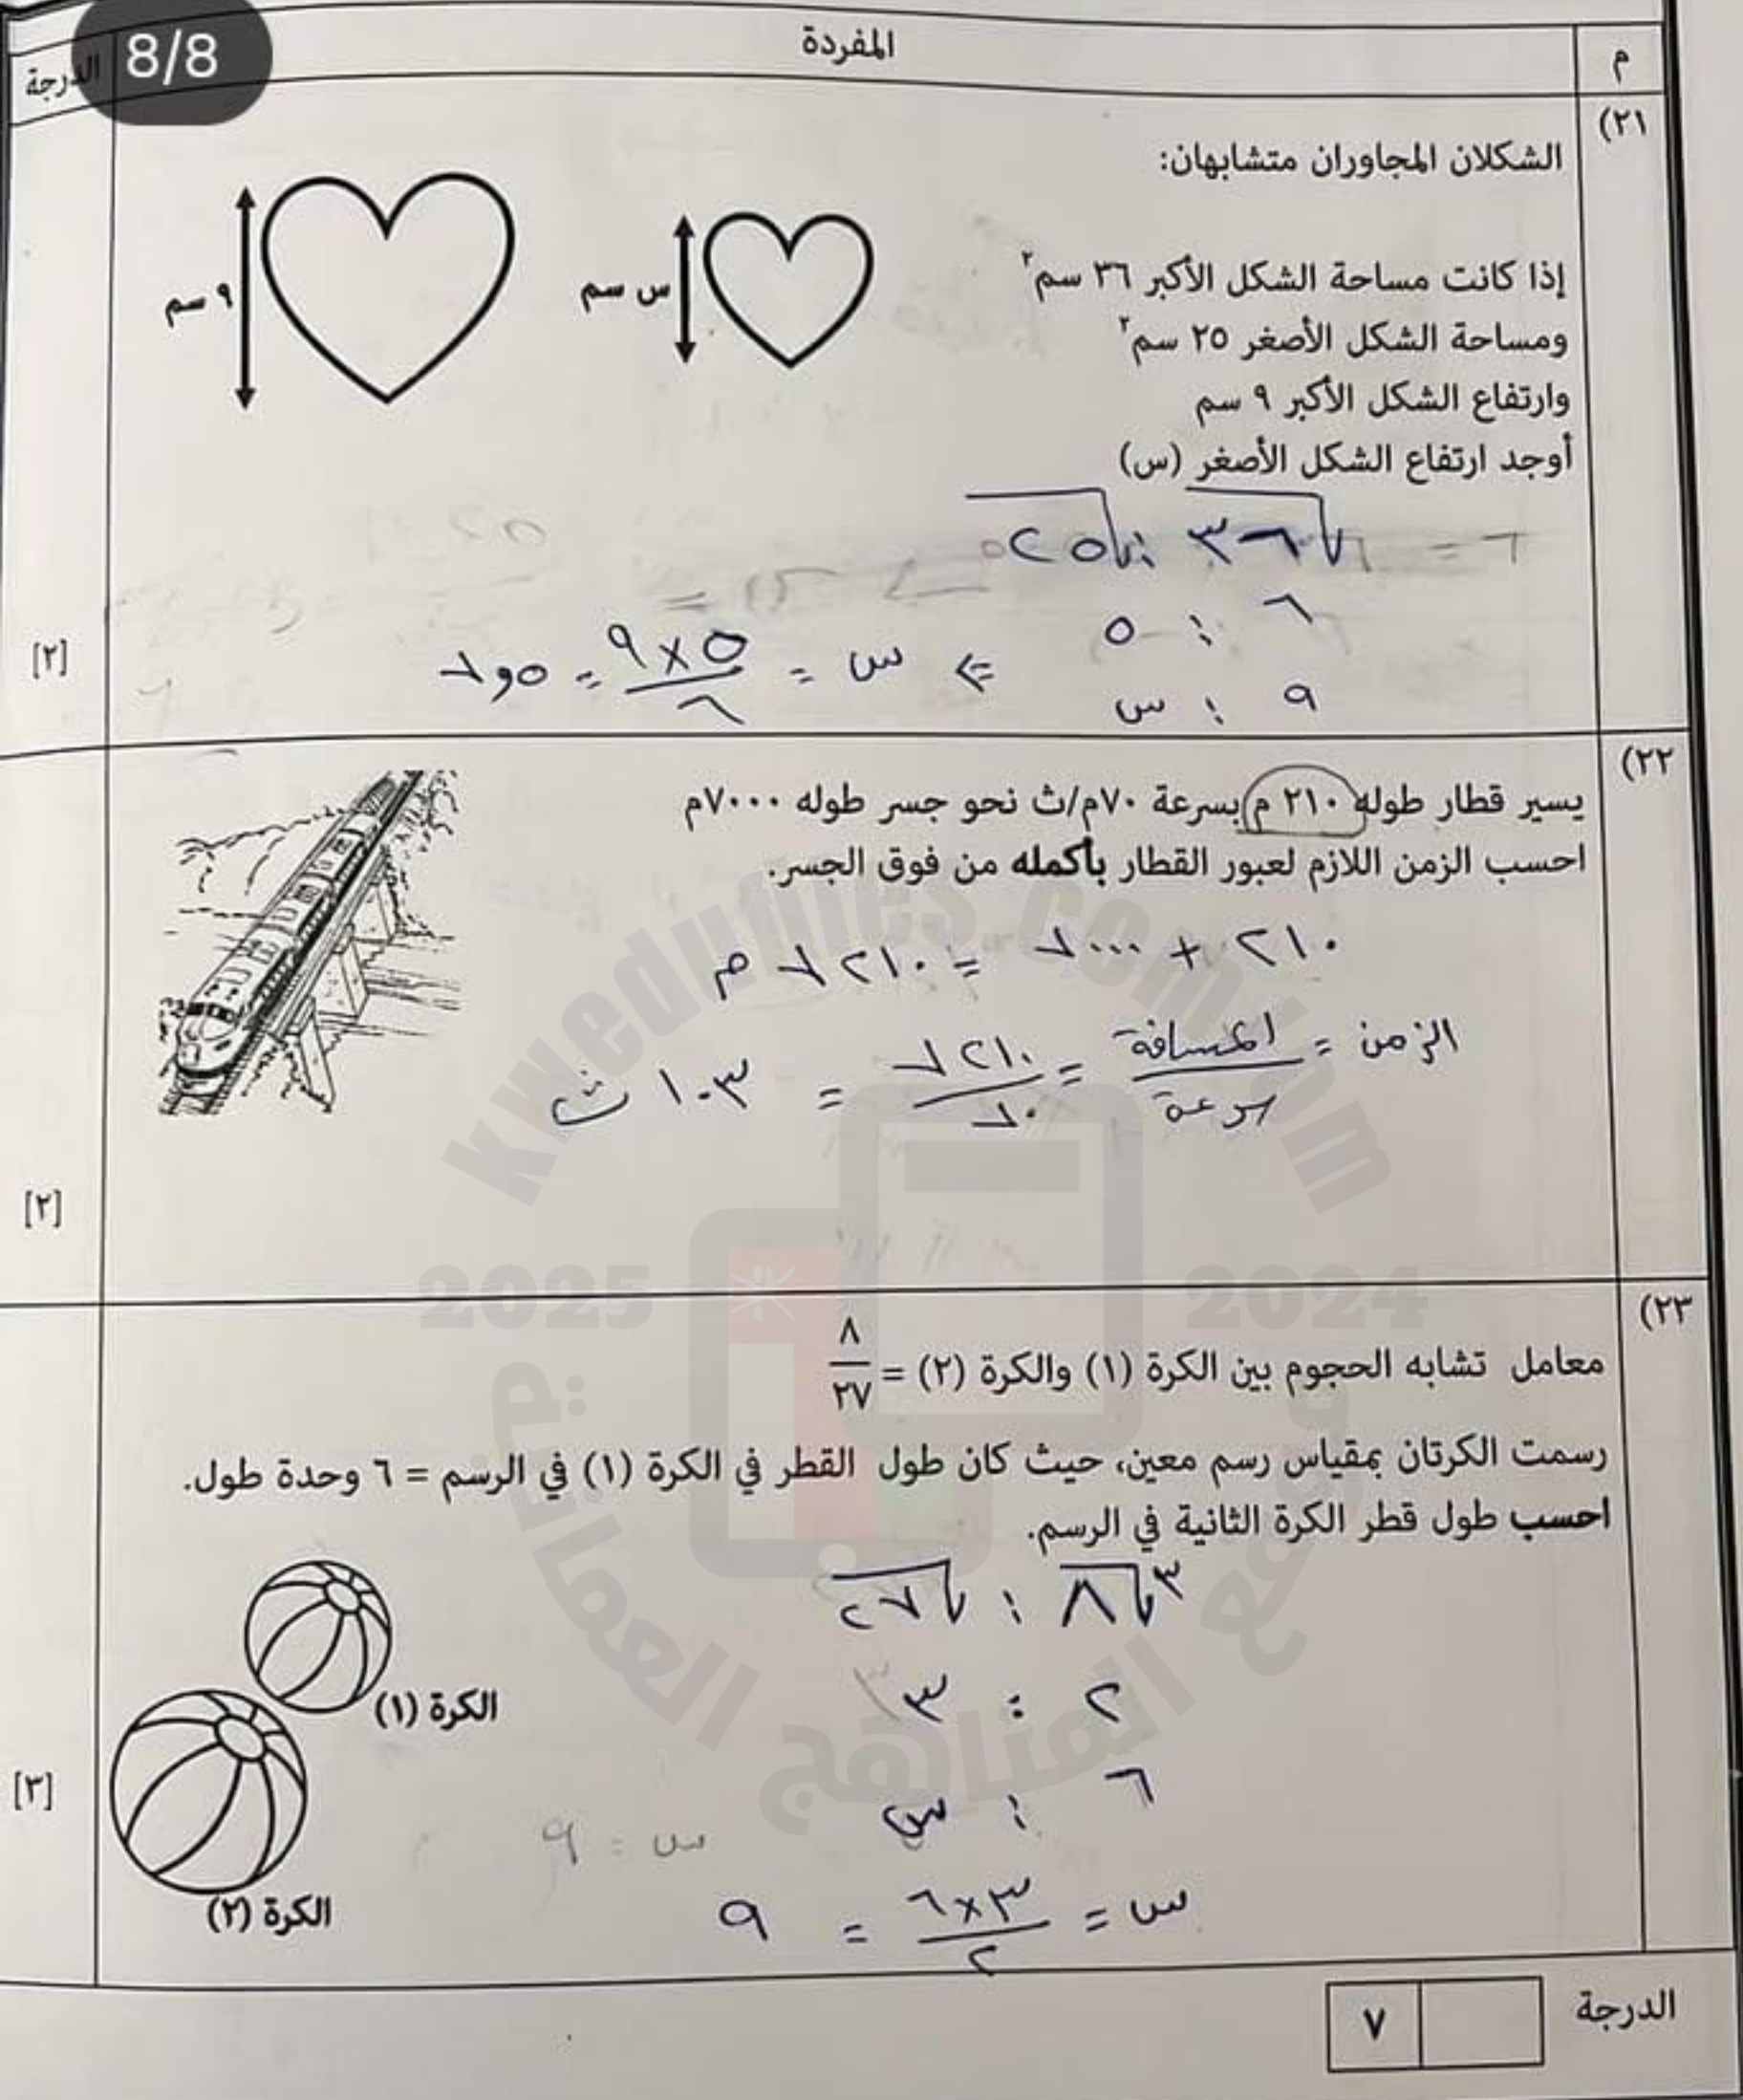 8/8
م
المفردة
الدرجة
(٢١
الشكلان المجاوران متشابهان:
إذا كانت مساحة الشكل الأكبر ٣٦ سم٢
ومساحة الشكل الأصغر ٢٥ سم٢
وارتفاع الشكل الأكبر ٩ سم
أوجد ارتفاع الشكل الأصغر (س)
س سم
٩ سم
√٣٦ : √٢٥
٦ : ٥
٩ : س ⇐ س = ٩×٥/٦ = ٧,٥
[٢]
(٢٢
يسير قطار طوله ٢١٠ م بسرعة ٧٠م/ث نحو جسر طوله ٧٠٠٠م
احسب الزمن اللازم لعبور القطار بأكمله من فوق الجسر.
٢١٠ + ٧٠٠٠ = ٧٢١٠ م
الزمن = المسافة/سرعة = ٧٢١٠/٧٠ = ١٠٣ ث
[٢]
kwedufiles.com/om
2025 2024
موقع المناهج العمانية
(٢٣
معامل تشابه الحجوم بين الكرة (١) والكرة (٢) = ٨/٢٧
رسمت الكرتان بمقياس رسم معين، حيث كان طول القطر في الكرة (١) في الرسم = ٦ وحدة طول.
احسب طول قطر الكرة الثانية في الرسم.
٣√٨ : √٢٧
٢ : ٣
٦ : س
س = ٩
س = ٦×٣/٢ = ٩
الكرة (١)
الكرة (٢)
[٣]
الدرجة
٧